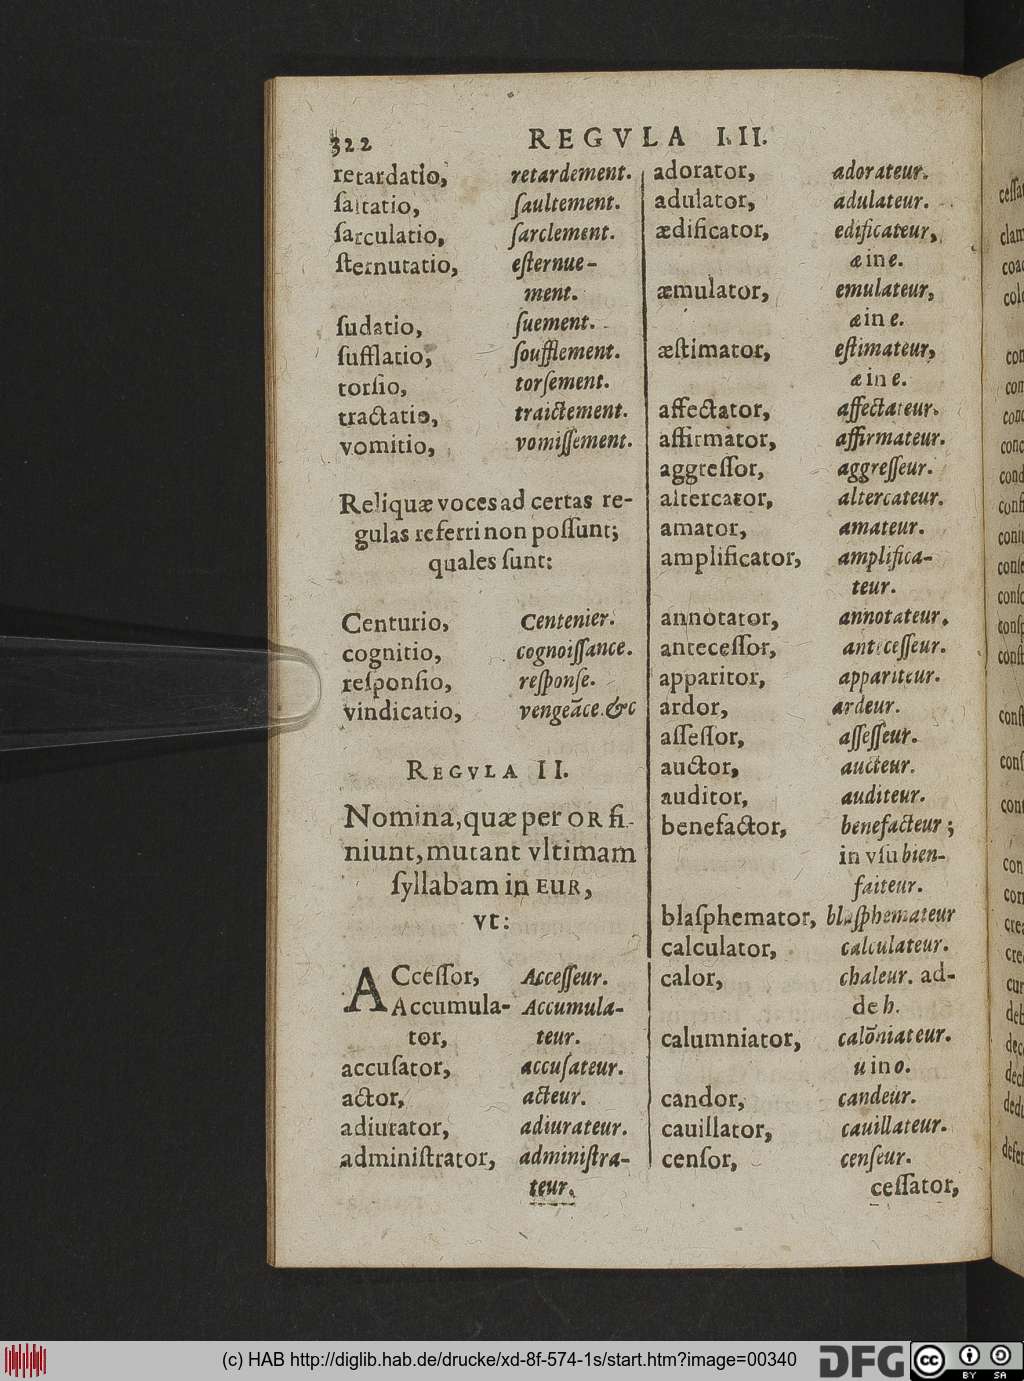 322
REGVLA I. II.
retardatio, retardement.
ſaltatio, ſaultement.
ſarculatio, ſarclement.
ſternutatio, eſternue-
ment.
ſudatio, ſuement.
ſufflatio, ſoufflement.
torſio, torſement.
tractatio, traictement.
vomitio, vomiſſement.
Reliquæ voces ad certas re-
gulas referri non poſſunt;
quales ſunt:
Centurio, Centenier.
cognitio, cognoiſſance.
reſponſio, reſponſe.
vindicatio, vengeãce. &c
REGVLA II.
Nomina, quæ per OR fi-
niunt, mutant vltimam
ſyllabam in EUR,
vt:
ACceſſor, Acceſſeur.
Accumula- Accumula-
tor, teur.
accuſator, accuſateur.
actor, acteur.
adiutator, adiurateur.
adminiſtrator, adminiſtra-
teur.
adorator, adorateur.
adulator, adulateur.
ædificator, edificateur,
æ in e.
æmulator, emulateur,
æ in e.
æſtimator, eſtimateur,
æ in e.
affectator, affectateur.
affirmator, affirmateur.
aggreſſor, aggreſſeur.
altercator, altercateur.
amator, amateur.
amplificator, amplifica-
teur.
annotator, annotateur.
anteceſſor, anteceſſeur.
apparitor, appariteur.
ardor, ardeur.
aſſeſſor, aſſeſſeur.
auctor, aucteur.
auditor, auditeur.
benefactor, benefacteur;
in vſu bien-
faiteur.
blaſphemator, blaſphemateur
calculator, calculateur.
calor, chaleur. ad-
de h.
calumniator, calõniateur.
u in o.
candor, candeur.
cauillator, cauillateur.
cenſor, cenſeur.
ceſſator,
(c) HAB http://diglib.hab.de/drucke/xd-8f-574-1s/start.htm?image=00340
DFG
cc
BY SA